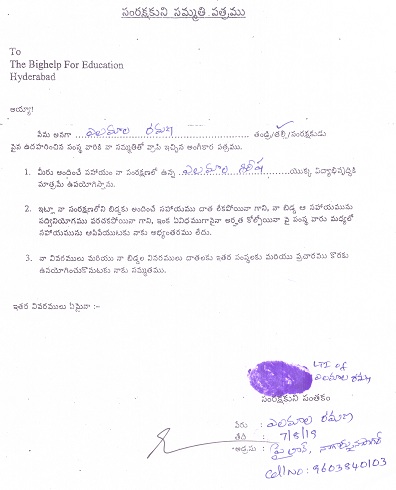 సంరక్షకుని సమ్మతి పత్రము
To
The Bighelp For Education
Hyderabad
అయ్యా!
మేము అనగా ఎలమాల రమణ తండ్రి/తల్లి/సంరక్షకుడు
పైన ఉదహరించిన సంస్థ వారికి నా సమ్మతితో వ్రాసి ఇచ్చిన అంగీకార పత్రము.
1. మీరు అందించే సహాయం నా సంరక్షణలో ఉన్న ఎలమాల శిరీష యొక్క విద్యాభివృద్ధికి
మాత్రమే ఉపయోగిస్తాను.
2. ఇట్లా నా సంరక్షణలోని బిడ్డకు అందించే సహాయము దాత లేకపోయినా గాని, నా బిడ్డ ఆ సహాయమును
సద్వినియోగము పరచకపోయినా గాని, ఇంక ఏవిధముగానైనా అర్హత కోల్పోయినా పై సంస్థ వారు మధ్యలో
సహాయమును ఆపివేయుటకు నాకు అభ్యంతరము లేదు.
3. నా వివరములు మరియు నా బిడ్డల వివరములు దాతలకు ఇతర సంస్థలకు మరియు ప్రచారము కొరకు
ఉపయోగించుకొనుటకు నాకు సమ్మతము.
ఇతర వివరములు ఏమైనా :-
LTI of
ఎలమాల రమణ
సంరక్షకుని సంతకం
పేరు : ఎలమాల రమణ
తేది : 7/8/19
అడ్రసు : పైలాన్, నాగార్జునసాగర్
Cell No: 9603840103